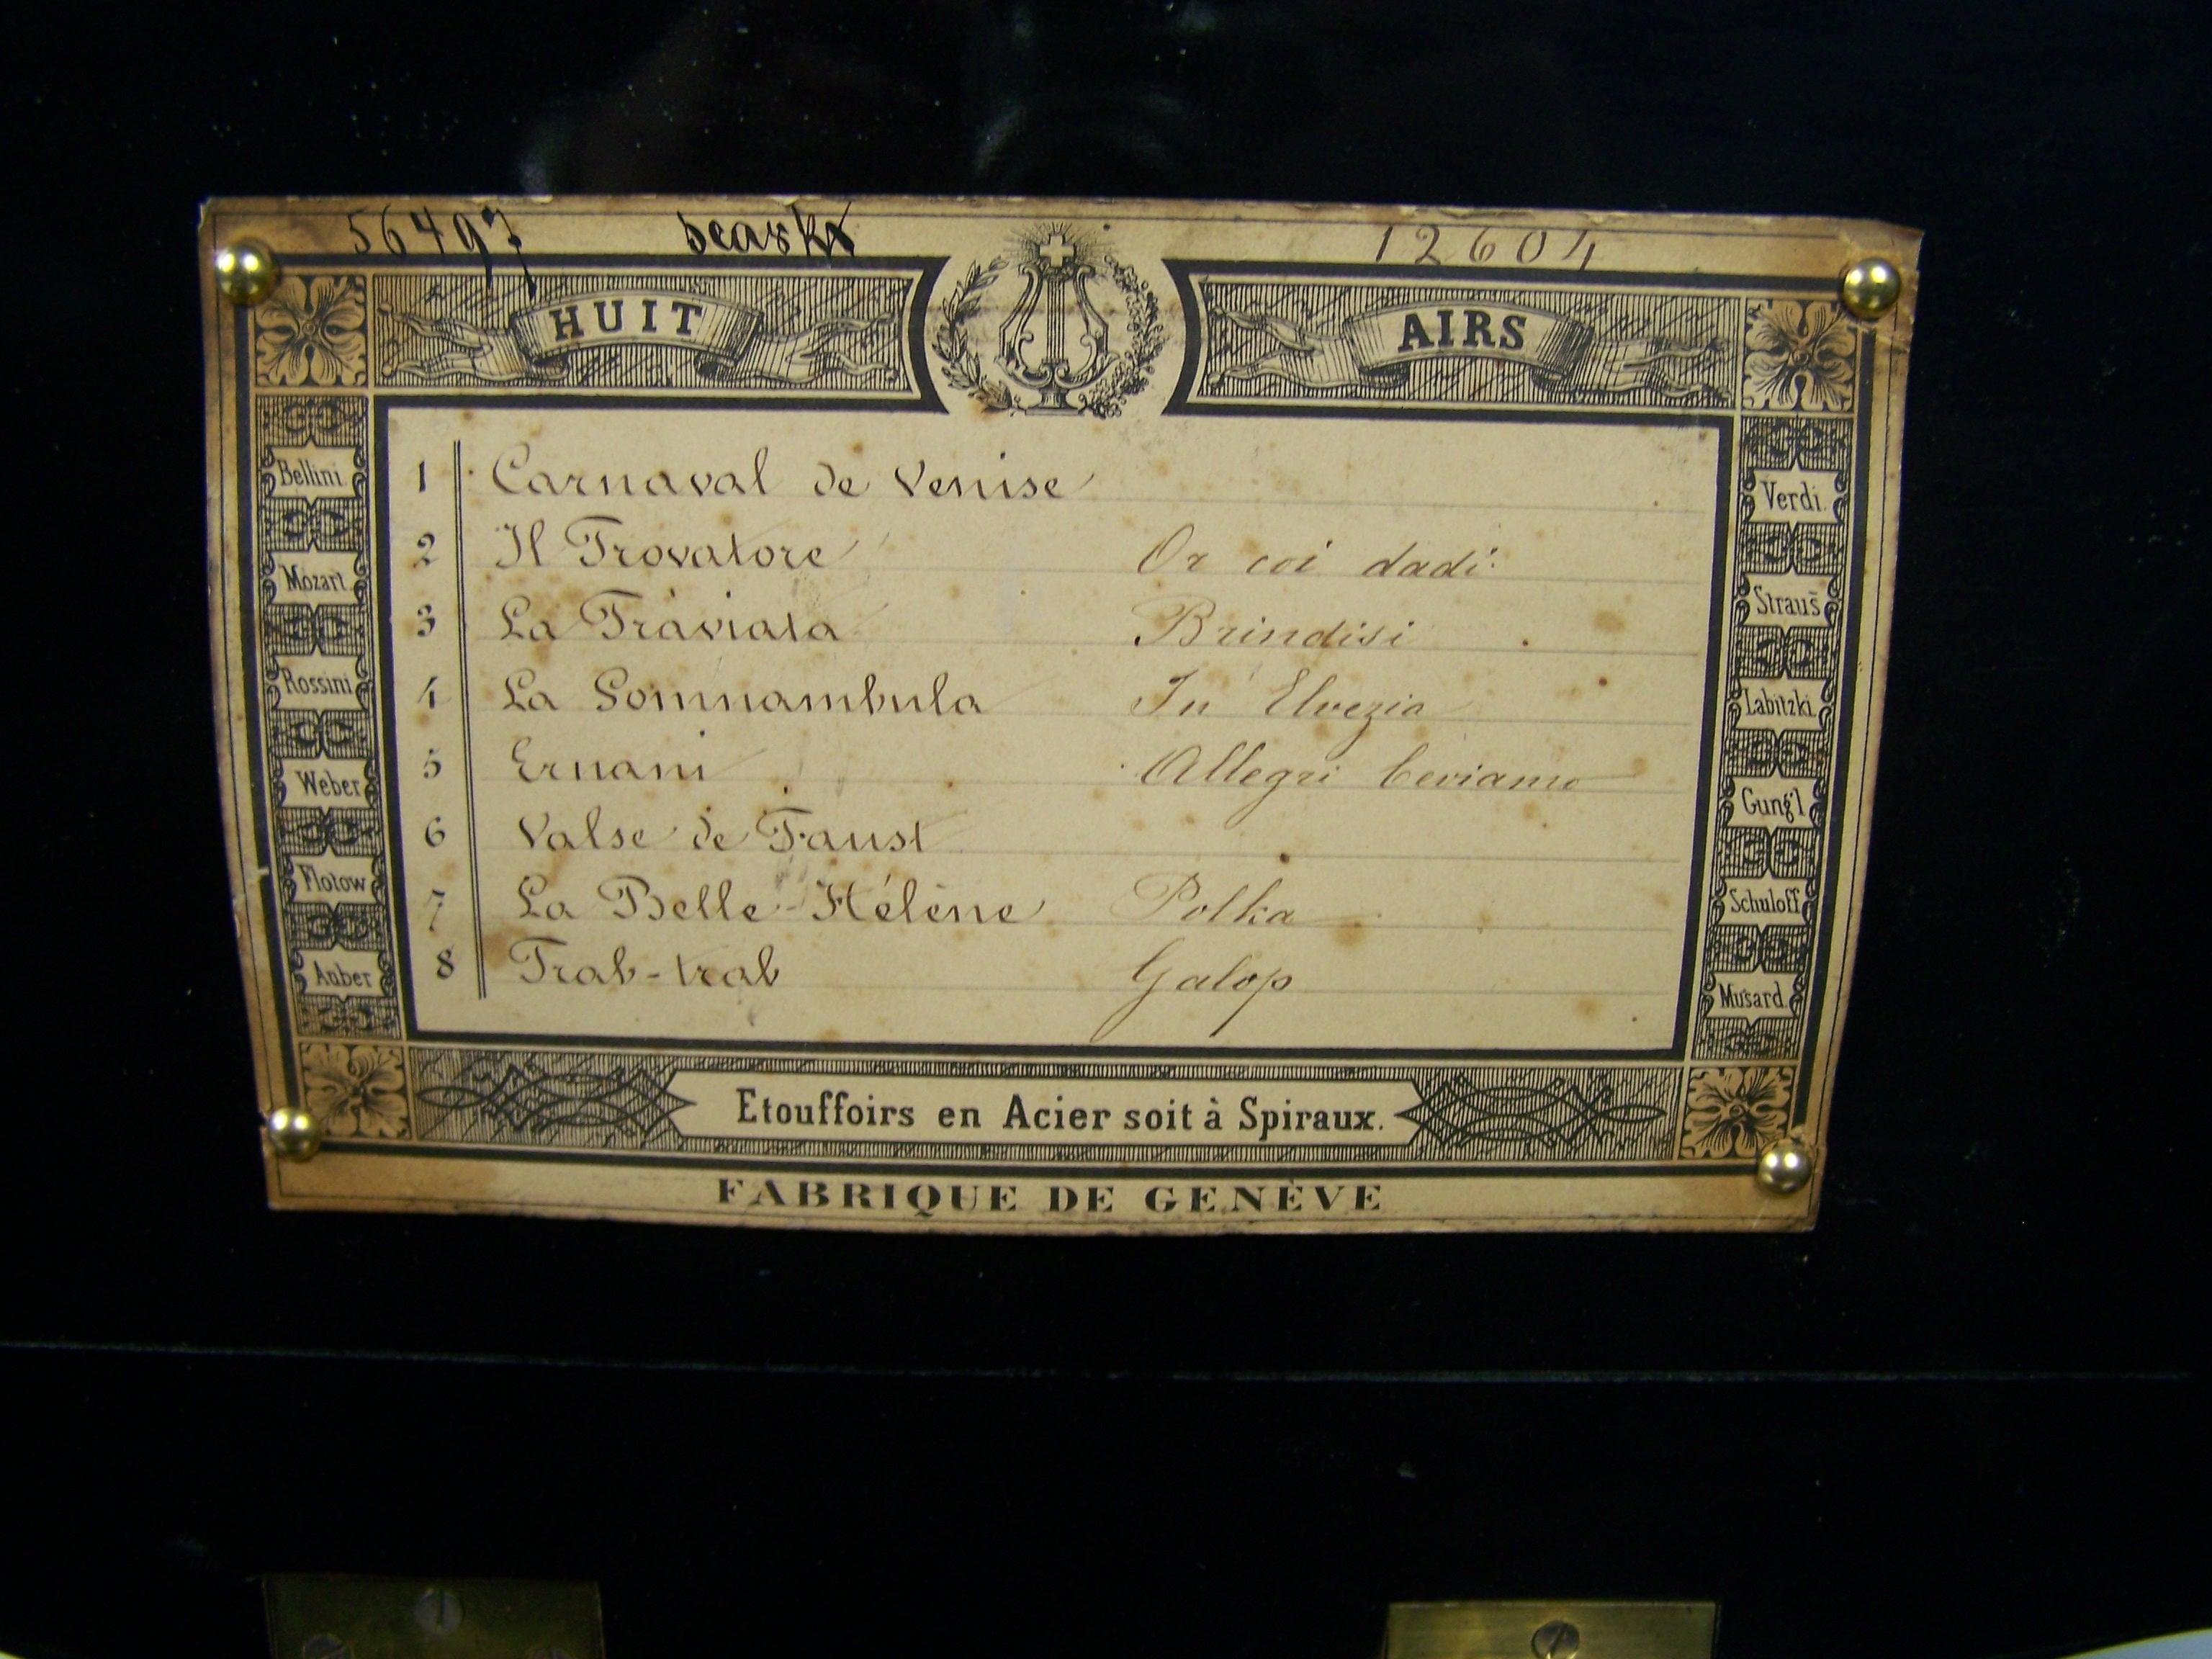 56497 12604
HUIT AIRS
1 Carnaval de Venise
2 Il Trovatore Or coi dadi
3 La Traviata Brindisi
4 La Somnambula In Elvezia
5 Ernani Allegri beviamo
6 Valse de Faust
7 La Belle-Hélène Polka
8 Trab-trab Galop
Bellini
Mozart
Rossini
Weber
Flotow
Auber
Verdi
Straus̄
Labitzki
Gung'l
Schuloff
Musard
Etouffoirs en Acier soit à Spiraux.
FABRIQUE DE GENÈVE